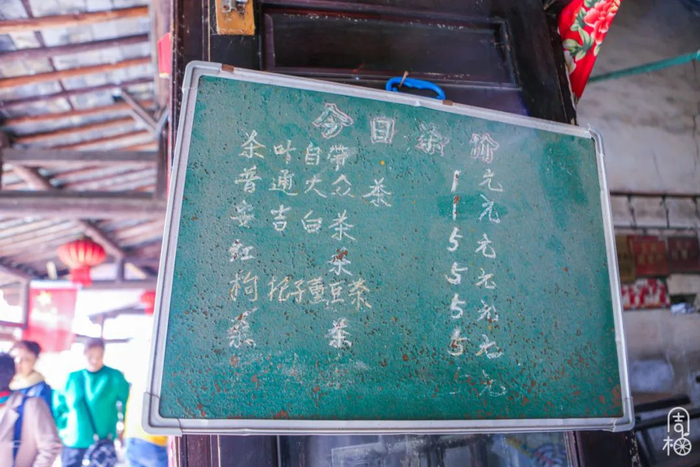 今日茶
茶叶自带 1元
普通大众茶 1元
安吉白茶 5元
红茶 5元
枸杞子熏豆茶 5元
茶 5元